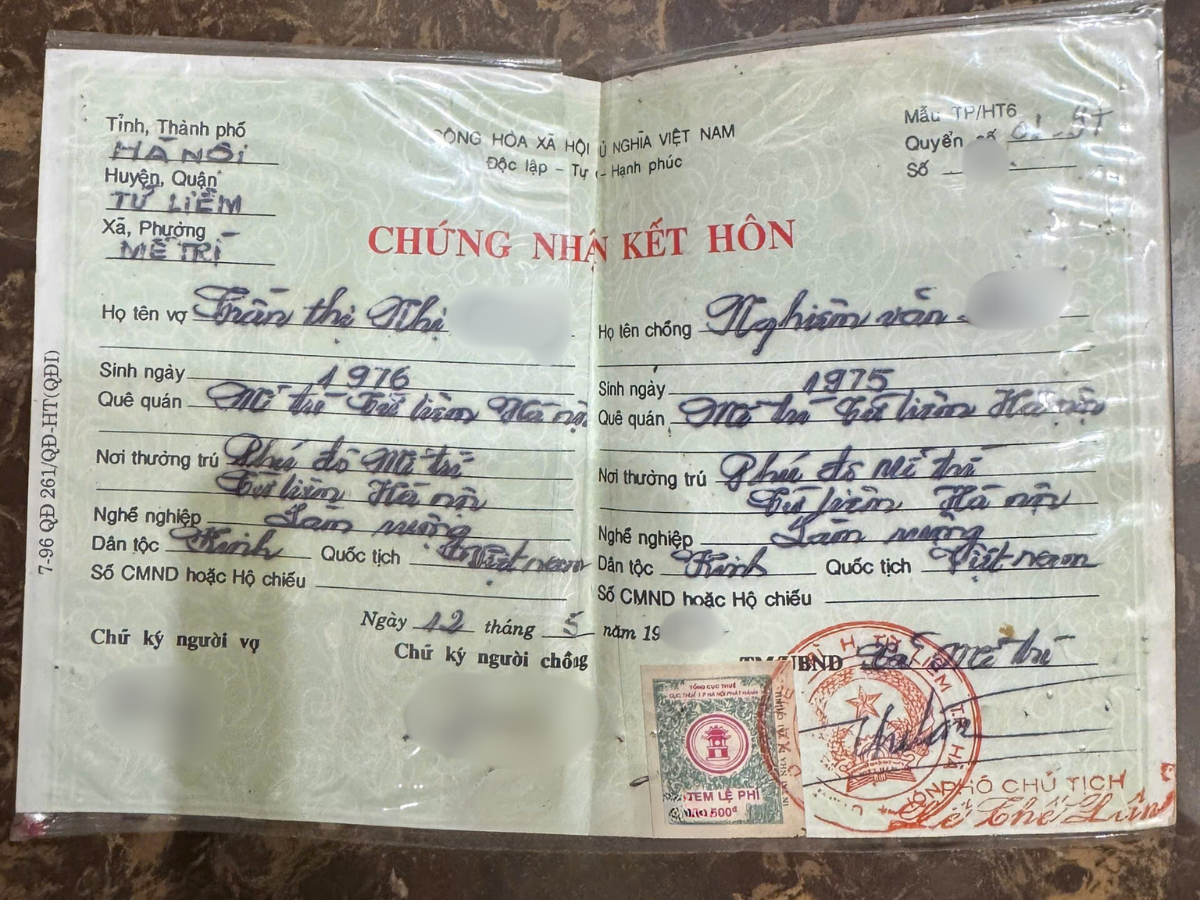 Tỉnh, Thành phố
HÀ NỘI
Huyện, Quận
TỪ LIÊM
Xã, Phường
MỄ TRÌ
CỘNG HÒA XÃ HỘI CHỦ NGHĨA VIỆT NAM
Độc lập - Tự do - Hạnh phúc
Mẫu TP/HT6
Quyển số 01-ST
Số
CHỨNG NHẬN KẾT HÔN
Họ tên vợ Trần thị Nhị
Sinh ngày 1976
Quê quán Mễ trì Từ liêm Hà nội
Nơi thường trú Phú đô Mễ trì
Từ liêm Hà nội
Nghề nghiệp Làm ruộng
Dân tộc Kinh Quốc tịch Việt nam
Số CMND hoặc Hộ chiếu
Họ tên chồng Nghiêm văn
Sinh ngày 1975
Quê quán Mễ trì Từ liêm Hà nội
Nơi thường trú Phú đô Mễ trì
Từ liêm Hà nội
Nghề nghiệp Làm ruộng
Dân tộc Kinh Quốc tịch Việt nam
Số CMND hoặc Hộ chiếu
Ngày 12 tháng 5 năm 19
Chữ ký người vợ
Chữ ký người chồng
TM/UBND Xã Mễ trì
TỔNG CỤC THUẾ
CỤC THUẾ T.P HÀ NỘI PHÁT HÀNH
TEM LỆ PHÍ
500đ
H. TỪ LIÊM T.P HÀ
PHÓ CHỦ TỊCH
7-96 QĐ 261/QĐ-HT(QĐI)